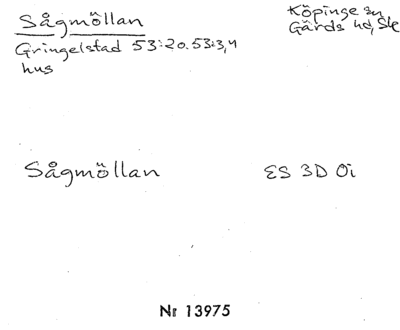 Sågmöllan
Köpinge sn
Gringelstad 53:20.53:3,4
Gärds hd, Sk
hus
Sågmöllan
ES 3D Oi
Nr 13975